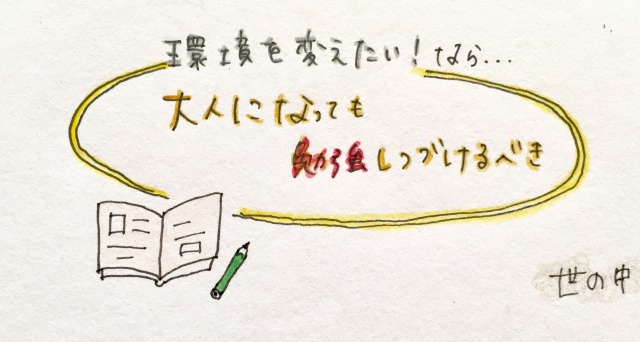 環境を変えたい!なら...
大人になっても
勉強しつづけるべき
世の中